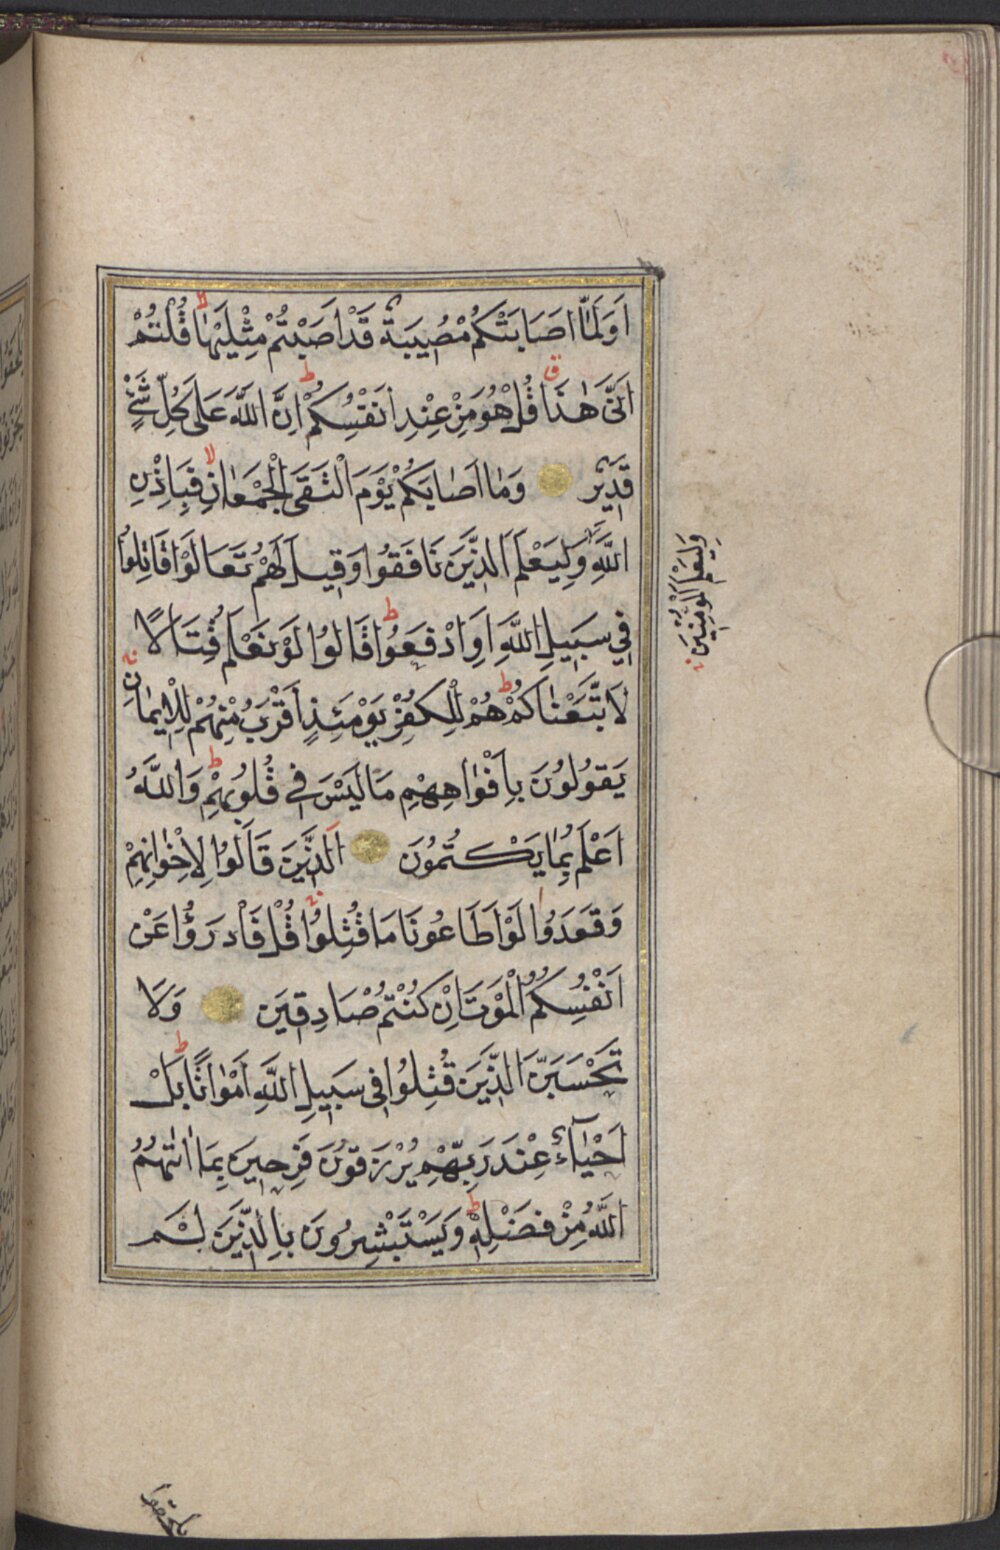 اَوَلَمَّٓا اَصَابَتْكُمْ مُصِيبَةٌ قَدْ اَصَبْتُمْ مِثْلَيْهَا قُلْتُمْ
اَنّٰى هٰذَا قُلْ هُوَ مِنْ عِنْدِ اَنْفُسِكُمْ اِنَّ اللّٰهَ عَلٰى كُلِّ شَيْءٍ
قَدِيرٌ وَمَا اَصَابَكُمْ يَوْمَ الْتَقَى الْجَمْعَانِ فَبِاِذْنِ
اللّٰهِ وَلِيَعْلَمَ الَّذِينَ نَافَقُوا وَقِيلَ لَهُمْ تَعَالَوْا قَاتِلُوا
فِي سَبِيلِ اللّٰهِ اَوِ ادْفَعُوا قَالُوا لَوْ نَعْلَمُ قِتَالًا
لَاتَّبَعْنَاكُمْ هُمْ لِلْكُفْرِ يَوْمَئِذٍ اَقْرَبُ مِنْهُمْ لِلْاِيمَانِ
يَقُولُونَ بِاَفْوَاهِهِمْ مَا لَيْسَ فِي قُلُوبِهِمْ وَاللّٰهُ
اَعْلَمُ بِمَا يَكْتُمُونَ اَلَّذِينَ قَالُوا لِاِخْوَانِهِمْ
وَقَعَدُوا لَوْ اَطَاعُونَا مَا قُتِلُوا قُلْ فَادْرَؤُا عَنْ
اَنْفُسِكُمُ الْمَوْتَ اِنْ كُنْتُمْ صَادِقِينَ وَلَا
تَحْسَبَنَّ الَّذِينَ قُتِلُوا فِي سَبِيلِ اللّٰهِ اَمْوَاتًا بَلْ
اَحْيَٓاءٌ عِنْدَ رَبِّهِمْ يُرْزَقُونَ فَرِحِينَ بِمَا اٰتٰيهُمُ
اللّٰهُ مِنْ فَضْلِهِ وَيَسْتَبْشِرُونَ بِالَّذِينَ لَمْ
وَلِيَعْلَمَ الْمُؤْمِنِينَ
يلحقوا